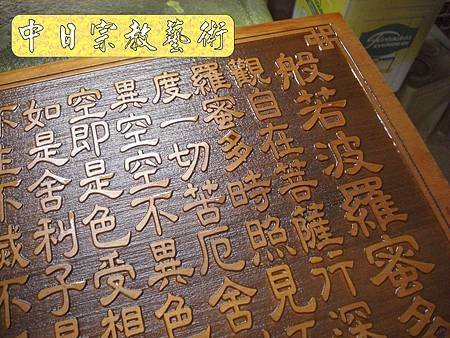 中日宗教藝術
般若波羅蜜多
觀自在菩薩行深
羅蜜多時照見五
度一切苦厄舍
異空空不異色
空即是色受想
如是舍利子是
不生不滅不